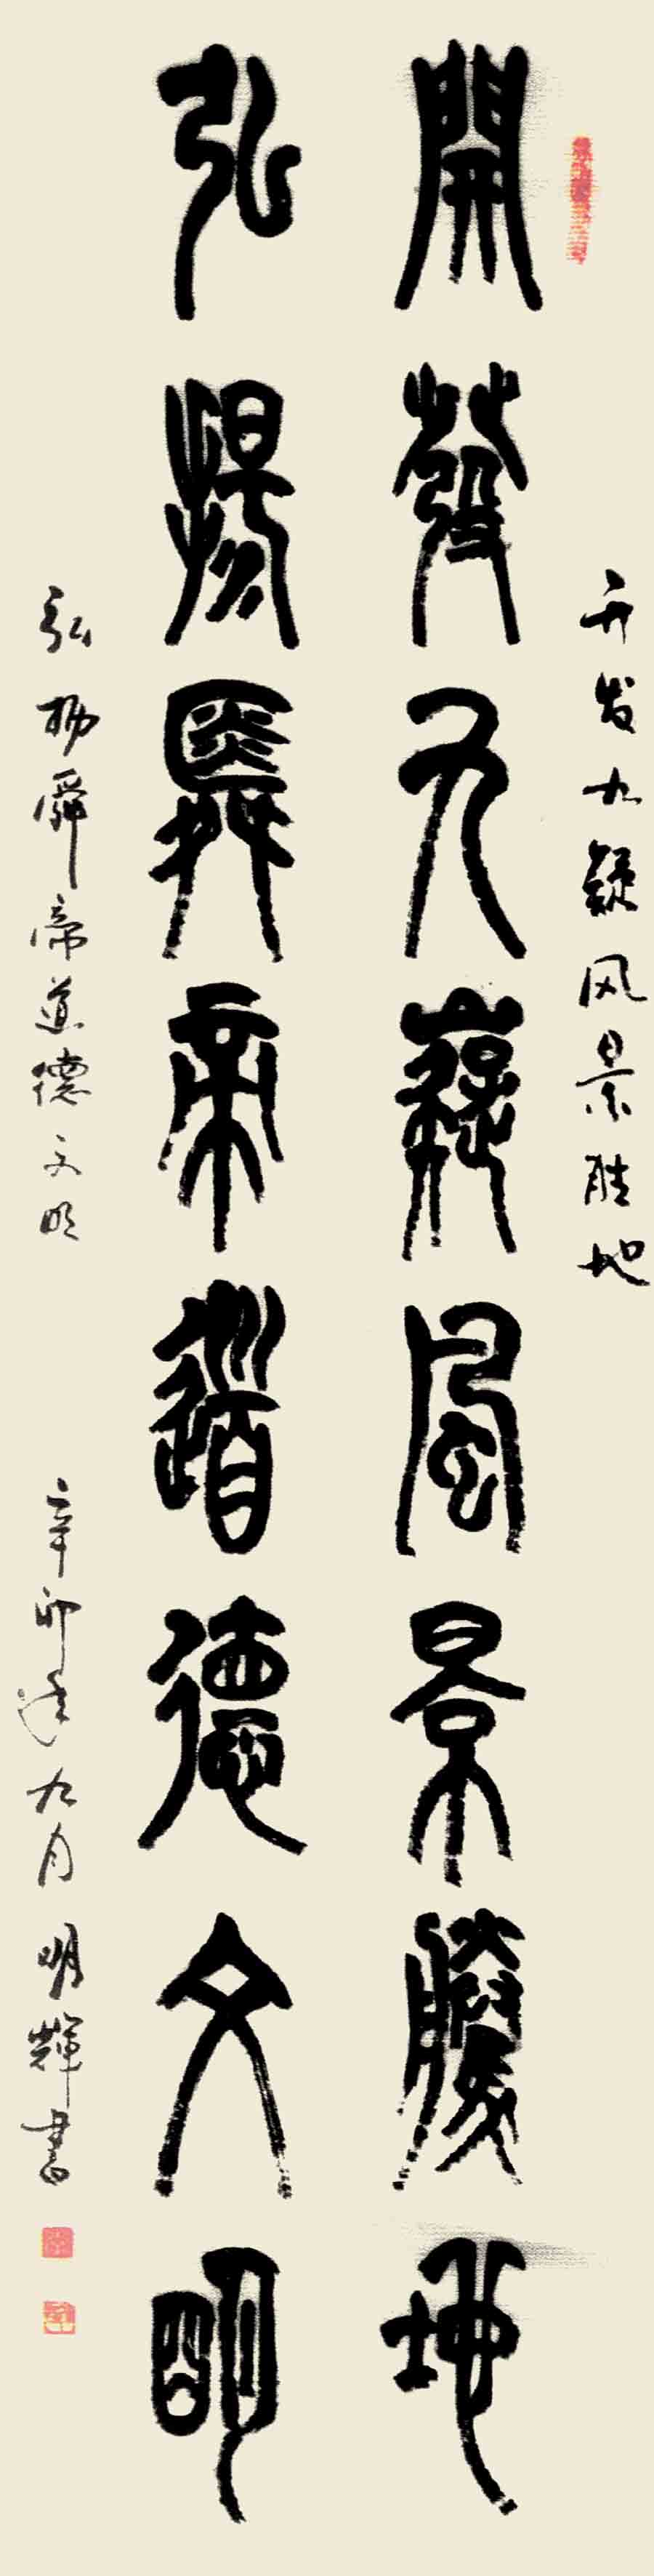 开发九疑风景胜地
開發九嶷風景勝地
弘揚舜帝道德文明
弘扬舜帝道德文明
辛卯年九月明輝書